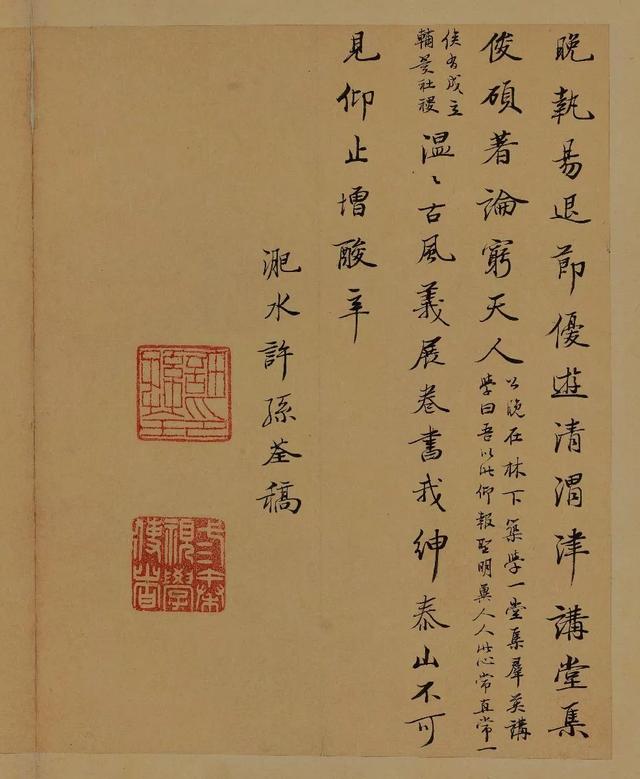 晚執易退節優遊清渭津講堂集
俊碩著論窮天人
公晚在林下築學一堂集羣英講
學曰吾以此仰報聖明冀人人此心常直常一
俟有成立
輔翼社稷
温〻古風義展卷書我紳泰山不可
見仰止增酸辛
淝水許孫荃稿
視學
使者